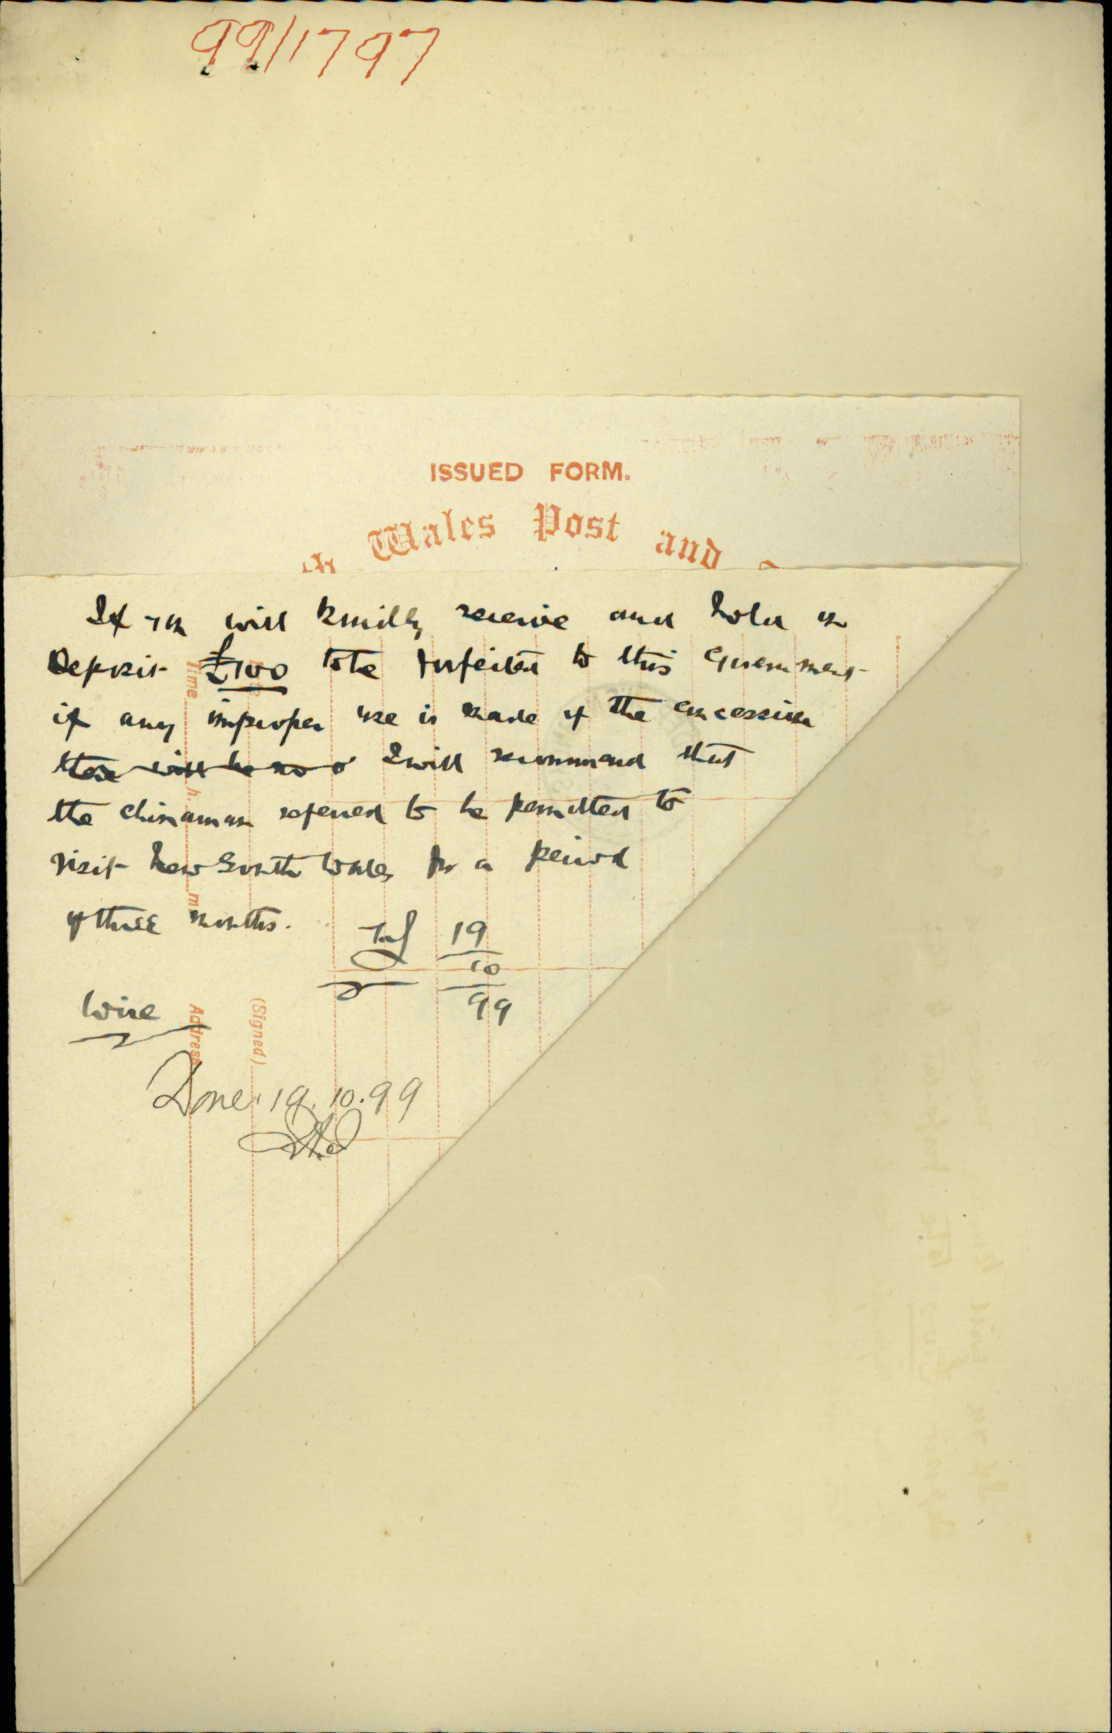 99/1797
ISSUED FORM.
Wales Post and
If you will kindly receive and hold on
Deposit £100 to be forfeited to this Government
if any improper use is made of the concession
there will be no o I will recommend that
the chinaman referred to be permitted to
visit New South Wales for a period
of three months.
19
10
99
Wire
Time
h
m
Address
(Signed)
Done. 19.10.99